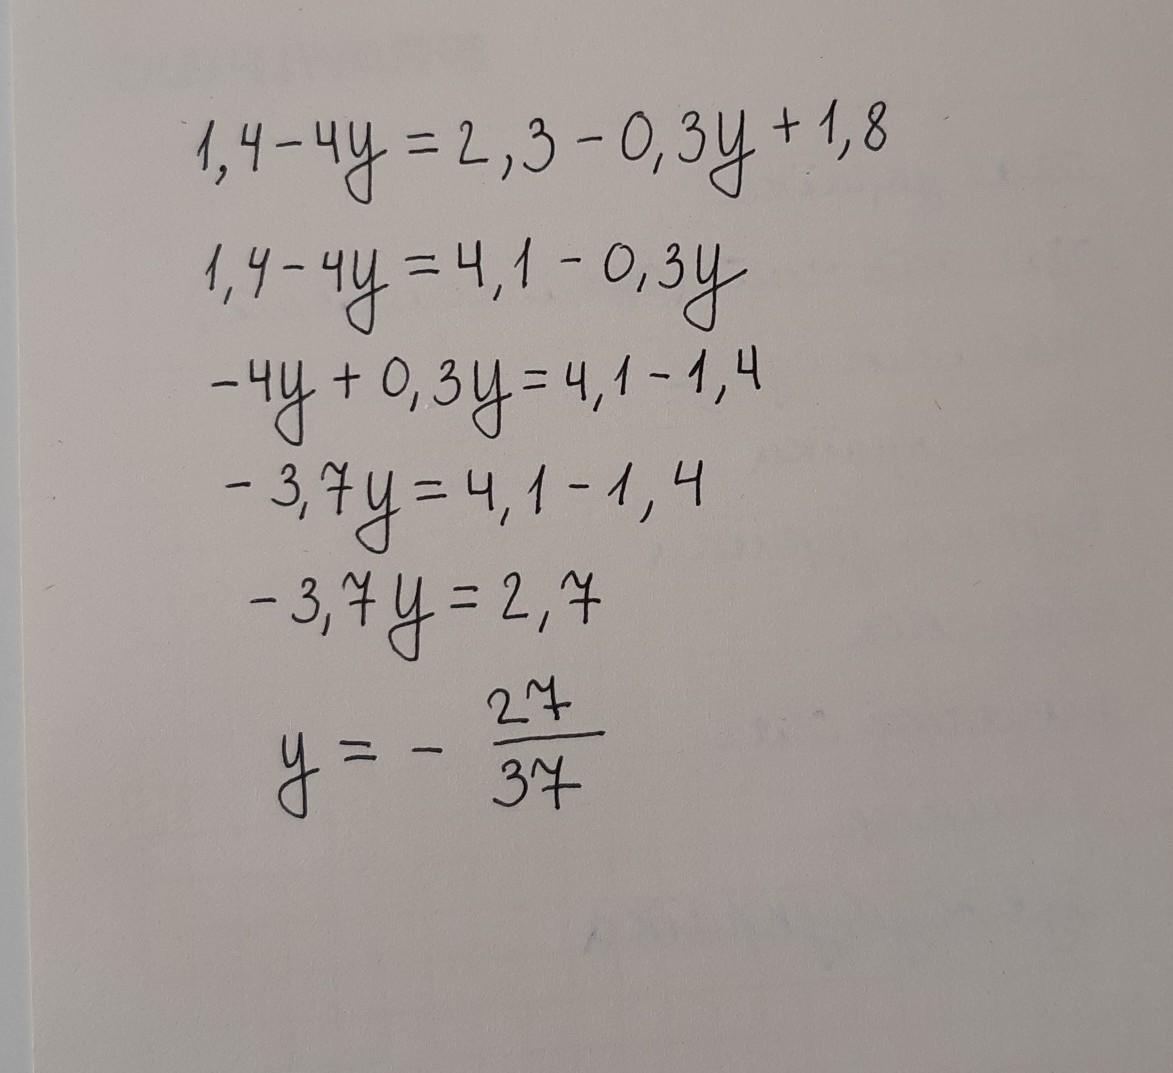 1,4-4y=2,3-0,3y+1,8
1,4-4y=4,1-0,3y
-4y+0,3y=4,1-1,4
-3,7y=4,1-1,4
-3,7y=2,7
y=-27/37